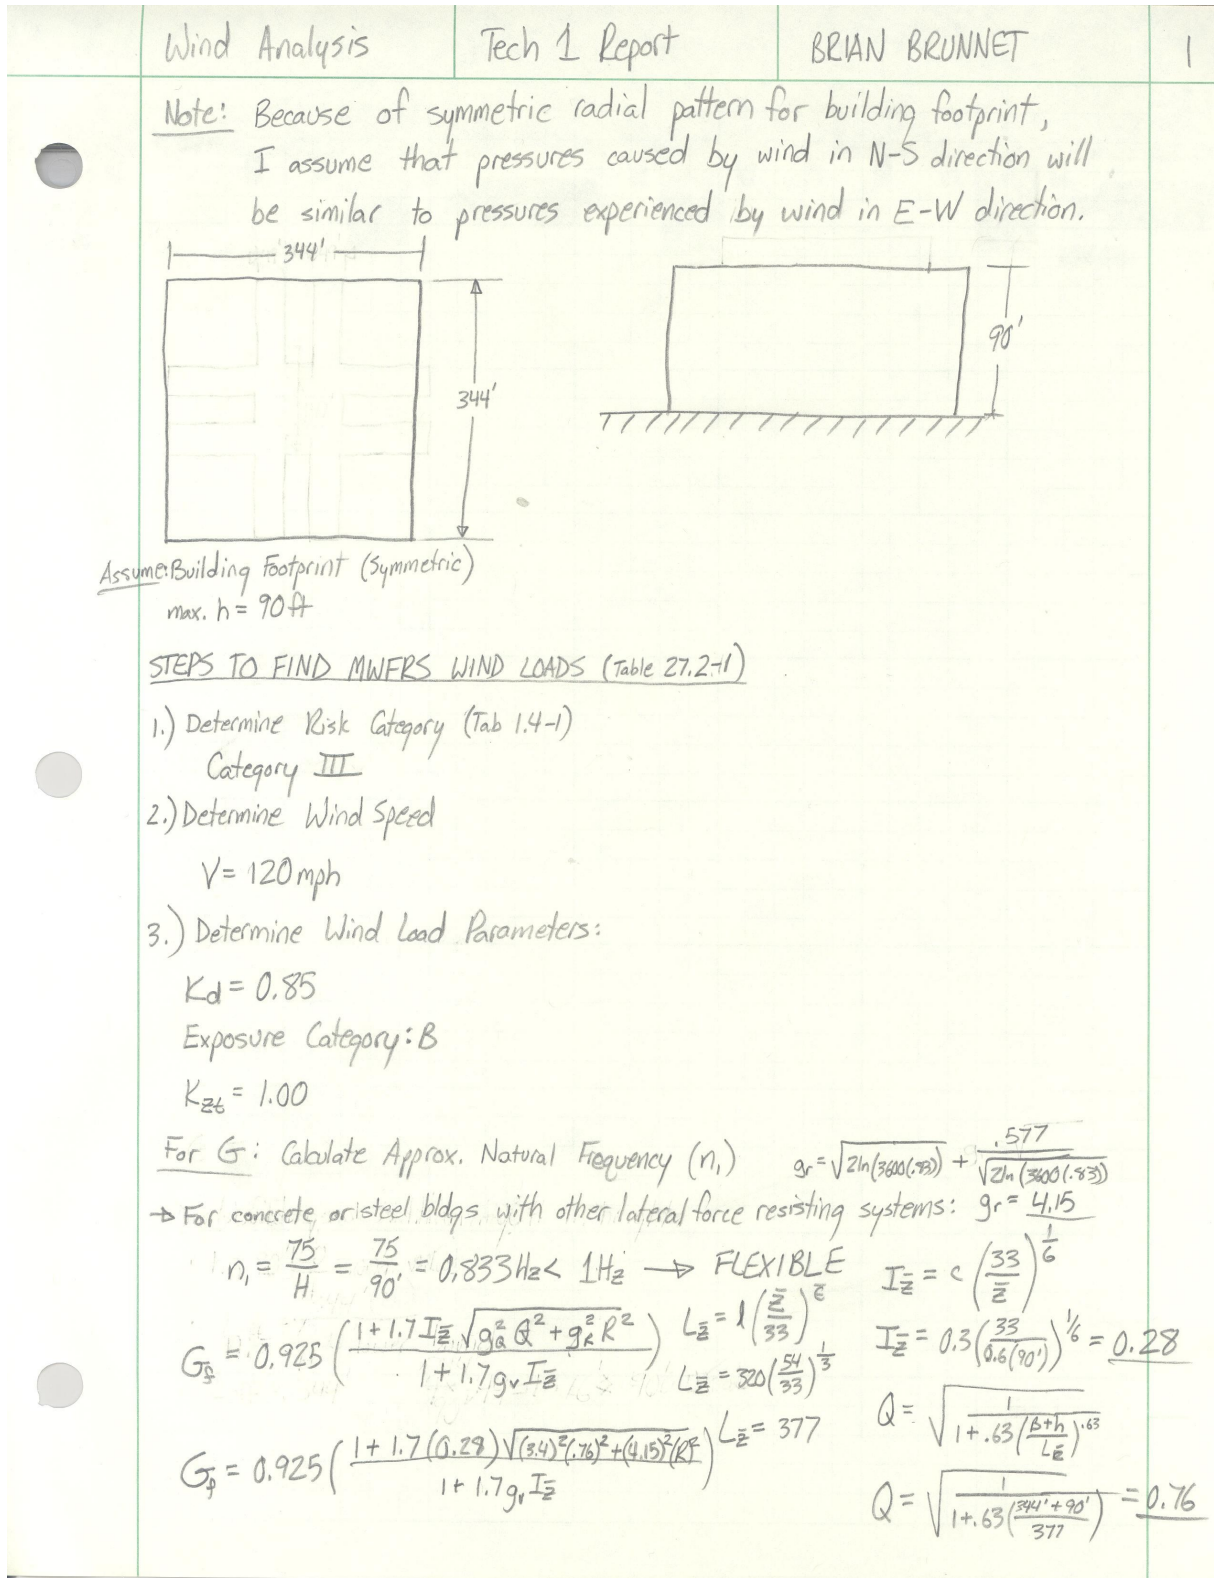 Wind Analysis Tech 1 Report BRIAN BRUNNET 1
Note: Because of symmetric radial pattern for building footprint,
I assume that pressures caused by wind in N-S direction will
be similar to pressures experienced by wind in E-W direction.
344'
344'
90'
Assume: Building Footprint (Symmetric)
max. h = 90 ft
STEPS TO FIND MWFRS WIND LOADS (Table 27.2-1)
1.) Determine Risk Category (Tab 1.4-1)
Category III
2.) Determine Wind Speed
V = 120 mph
3.) Determine Wind Load Parameters:
Kd = 0.85
Exposure Category: B
Kzt = 1.00
For G: Calculate Approx. Natural Frequency (n₁)
gr = √(2ln(3600(.83))) + .577/√(2ln(3600(.83)))
→ For concrete or steel bldgs with other lateral force resisting systems: gr = 4.15
n₁ = 75/H = 75/90' = 0.833 Hz < 1 Hz → FLEXIBLE
Iz̄ = c(33/z̄)^(1/6)
Gf = 0.925((1 + 1.7 Iz̄ √(gQ² Q² + gR² R²))/(1 + 1.7 gv Iz̄))
Lz̄ = l(z̄/33)^ε̄
Lz̄ = 320(54/33)^(1/3)
Iz̄ = 0.3(33/0.6(90'))^(1/6) = 0.28
Lz̄ = 377
Q = √(1/(1 + .63((B+h)/Lz̄)^.63))
Gf = 0.925((1 + 1.7(0.28)√((3.4)²(.76)² + (4.15)²(R)²))/(1 + 1.7 gv Iz̄))
Q = √(1/(1 + .63((344' + 90')/377))) = 0.76